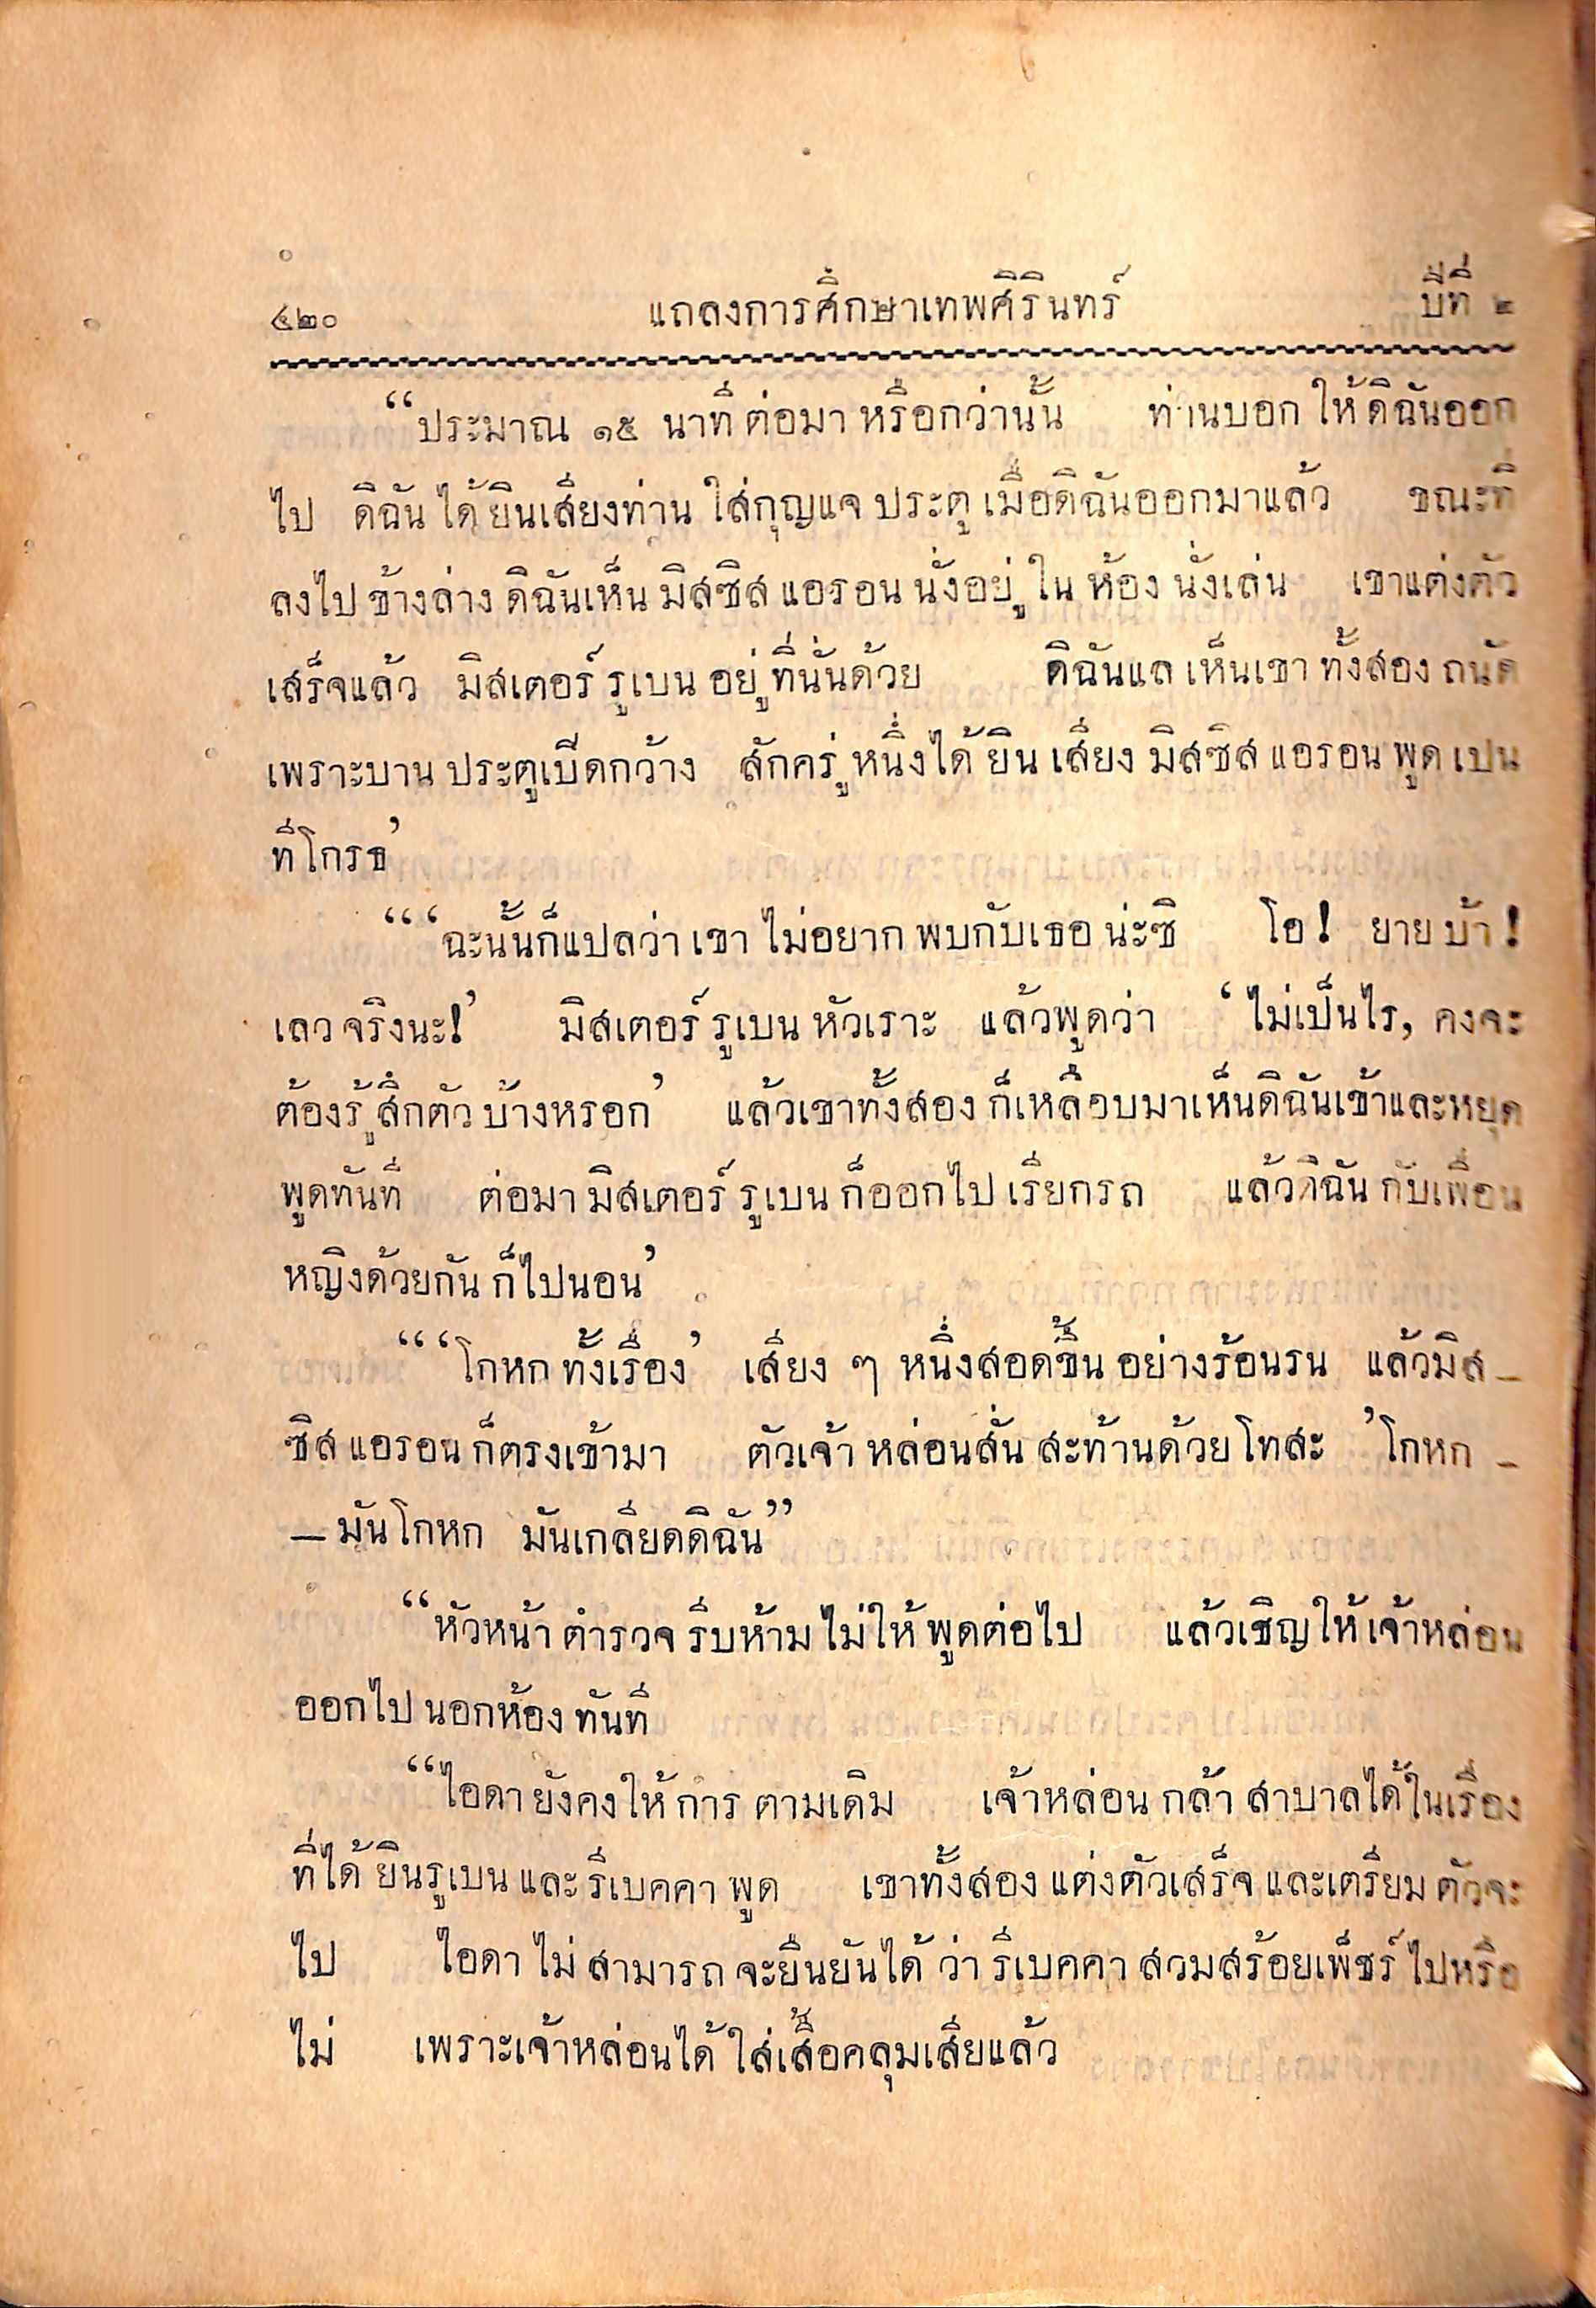 ๔๒๐ แถลงการศึกษาเทพศิรินทร์ ปีที่ ๒
“ประมาณ ๑๕ นาที ต่อมา หรือกว่านั้น ท่านบอก ให้ ดิฉันออก
ไป ดิฉัน ได้ ยินเสียงท่าน ใส่กุญแจ ประตู เมื่อดิฉันออกมาแล้ว ขณะที่
ลงไป ข้างล่าง ดิฉันเห็น มิสซิส แอรอน นั่งอยู่ ใน ห้อง นั่งเล่น เขาแต่งตัว
เสร็จแล้ว มิสเตอร์ รูเบน อยู่ ที่นั่นด้วย ดิฉันแล เห็นเขา ทั้งสอง ถนัด
เพราะบาน ประตูเปิดกว้าง สักครู่ หนึ่งได้ ยิน เสียง มิสซิส แอรอน พูด เปน
ทีโกรธ’
“ ‘ฉะนั้นก็แปลว่า เขา ไม่อยาก พบกับเธอ น่ะซิ โอ! ยาย บ้า!
เลว จริงนะ!’ มิสเตอร์ รูเบน หัวเราะ แล้วพูดว่า ‘ไม่เป็นไร, คงจะ
ต้องรู้ สึกตัว บ้างหรอก’ แล้วเขาทั้งสอง ก็เหลือบมาเห็นดิฉันเข้าและหยุด
พูดทันที ต่อมา มิสเตอร์ รูเบน ก็ออกไป เรียกรถ แล้วดิฉัน กับเพื่อน
หญิงด้วยกัน ก็ไปนอน’
“ ‘โกหก ทั้งเรื่อง’ เสียง ๆ หนึ่งสอดขึ้น อย่างร้อนรน แล้วมิส–
ซิส แอรอน ก็ตรงเข้ามา ตัวเจ้า หล่อนสั่น สะท้านด้วย โทสะ ’โกหก –
– มันโกหก มันเกลียดดิฉัน”
“หัวหน้า ตำรวจ รีบห้าม ไม่ให้ พูดต่อไป แล้วเชิญ ให้ เจ้าหล่อน
ออกไป นอกห้อง ทันที
“ไอดา ยังคงให้ การ ตามเดิม เจ้าหล่อน กล้า สาบาลได้ ในเรื่อง
ที่ได้ ยินรูเบน และ รีเบคคา พูด เขาทั้งสอง แต่งตัวเสร็จ และเตรียม ตัวจะ
ไป ไอดา ไม่ สามารถ จะยืนยันได้ ว่า รีเบคคา สวมสร้อยเพ็ชร์ ไปหรือ
ไม่ เพราะเจ้าหล่อนได้ ใส่เสื้อคลุมเสียแล้ว